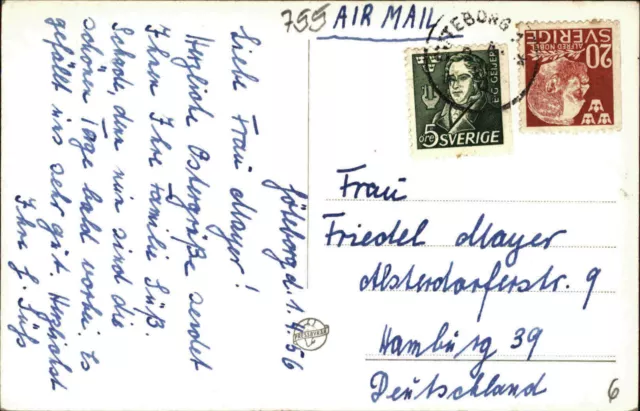 755
AIR MAIL
GÖTEBORG
E·G·GEIJER
5
öre
SVERIGE
ALFRED NOBEL
SVERIGE
20
Göteborg d. 1.4.56
Liebe Frau Mayer!
Herzliche Ostergrüße sendet
Ihnen Ihre Familie Süß
Schade, denn nun sind die
schönen Tage bald vorbei. Es
gefällt uns sehr gut. Herzlichst
Ihre G. Süß
Frau
Friedel Mayer
Alsterdorferstr. 9
Hamburg 39
Deutschland
6